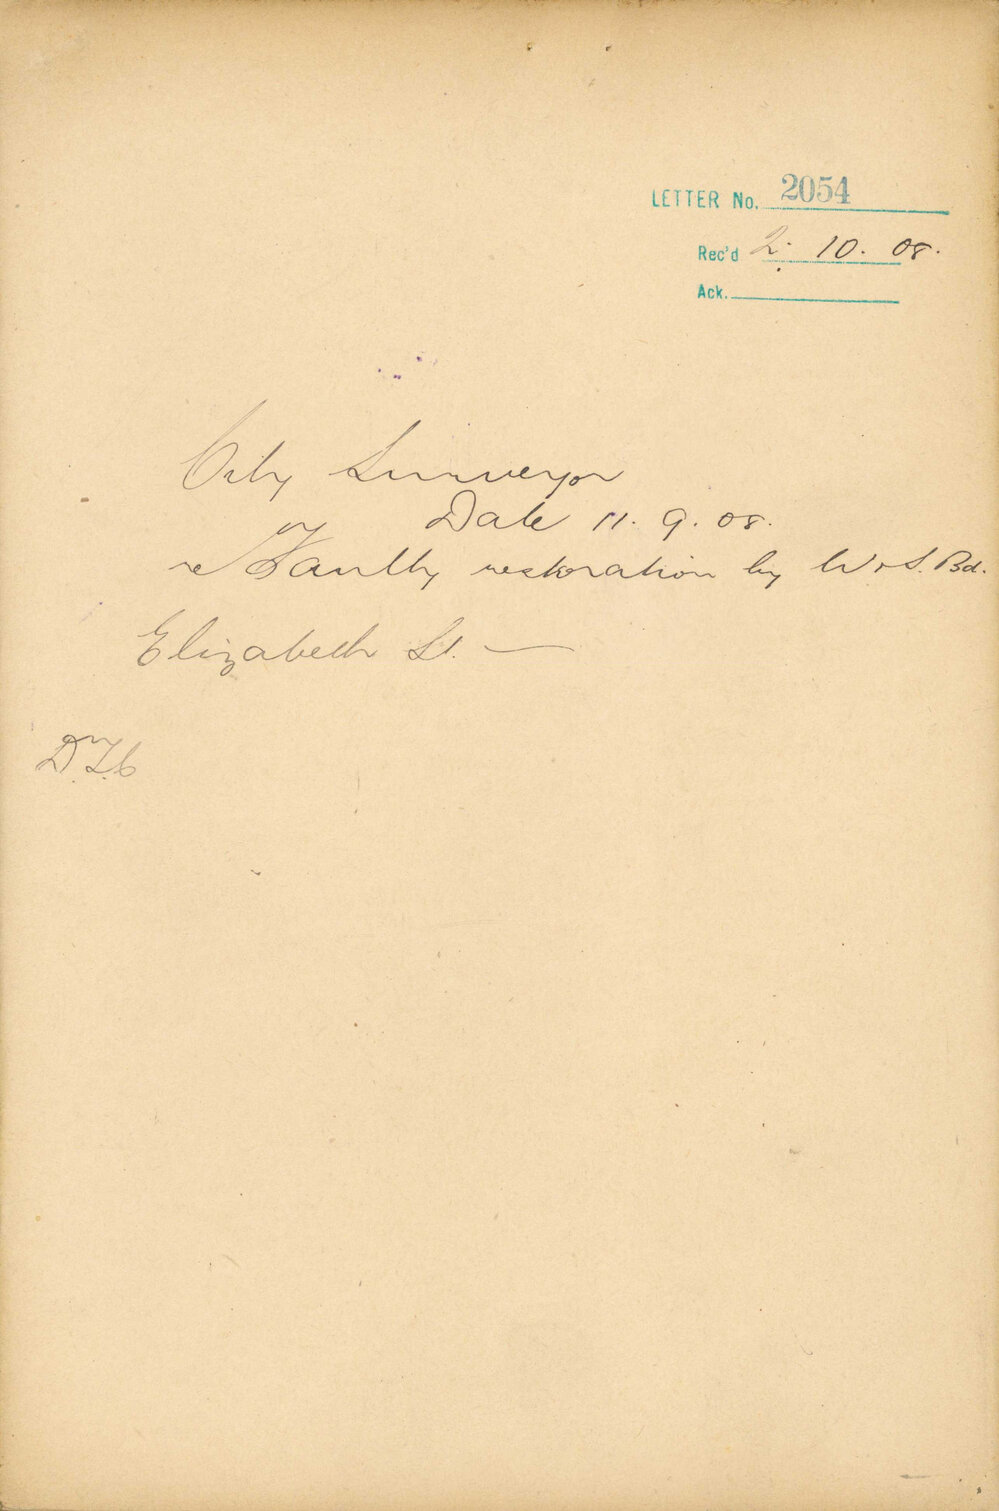 LETTER No. 2054
Rec'd 2. 10. 08.
Ack.
City Surveyor
Date 11. 9. 08.
re Faulty restoration by W & S. Bd.
Elizabeth St. —
D.T.C